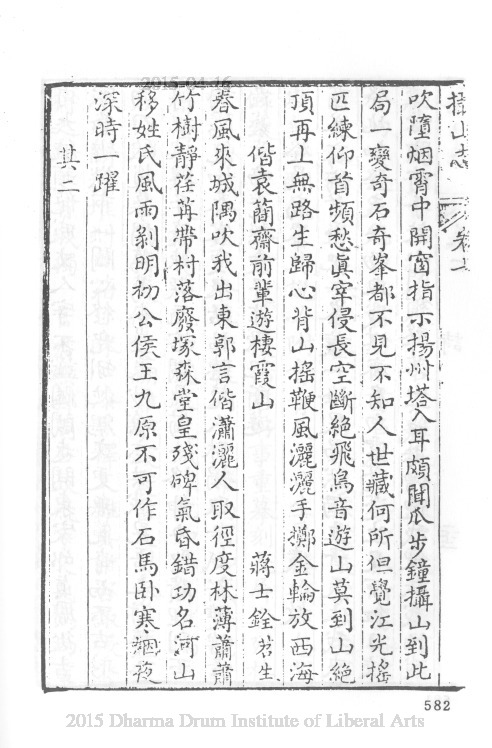 攝山志
吹墮烟霄中開窗指示揚州塔入耳頗聞瓜步鐘攝山到此
局一變奇石奇峯都不見不知人世藏何所但覺江光搖
匹練仰首頻愁眞宰侵長空斷絕飛鳥音遊山莫到山絕
頂再上無路生歸心背山搖鞭風灑灑手擲金輪放西海
偕袁簡齋前輩遊棲霞山
蔣士銓 苕生
春風來城隅吹我出東郭言偕瀟灑人取徑度林薄蕭蕭
竹樹靜荏苒帶村落廢塚森堂皇殘碑氣昏錯功名河山
移姓氏風雨剝明初公侯王九原不可作石馬臥寒烟夜
深時一躍
其二
582
2015-04-16
2015 Dharma Drum Institute of Liberal Arts